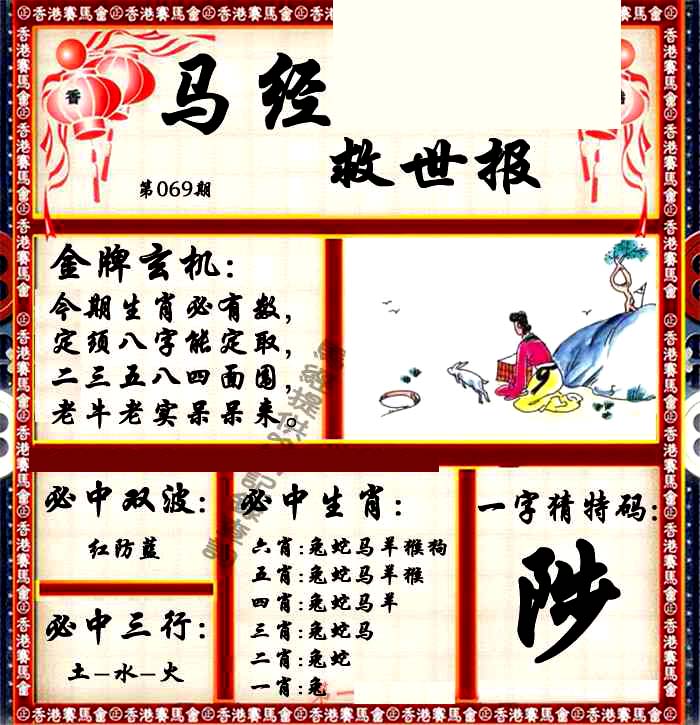 香港賽馬會
香
马经
救世报
第069期
金牌玄机:
今期生肖必有数,
定须八字能定取,
二三五八四面围,
老牛老实呆呆来。
必中双波:
红防蓝
必中三行:
土-水-火
必中生肖:
六肖:兔蛇马羊猴狗
五肖:兔蛇马羊猴
四肖:兔蛇马羊
三肖:兔蛇马
二肖:兔蛇
一肖:兔
一字猜特码:
陟